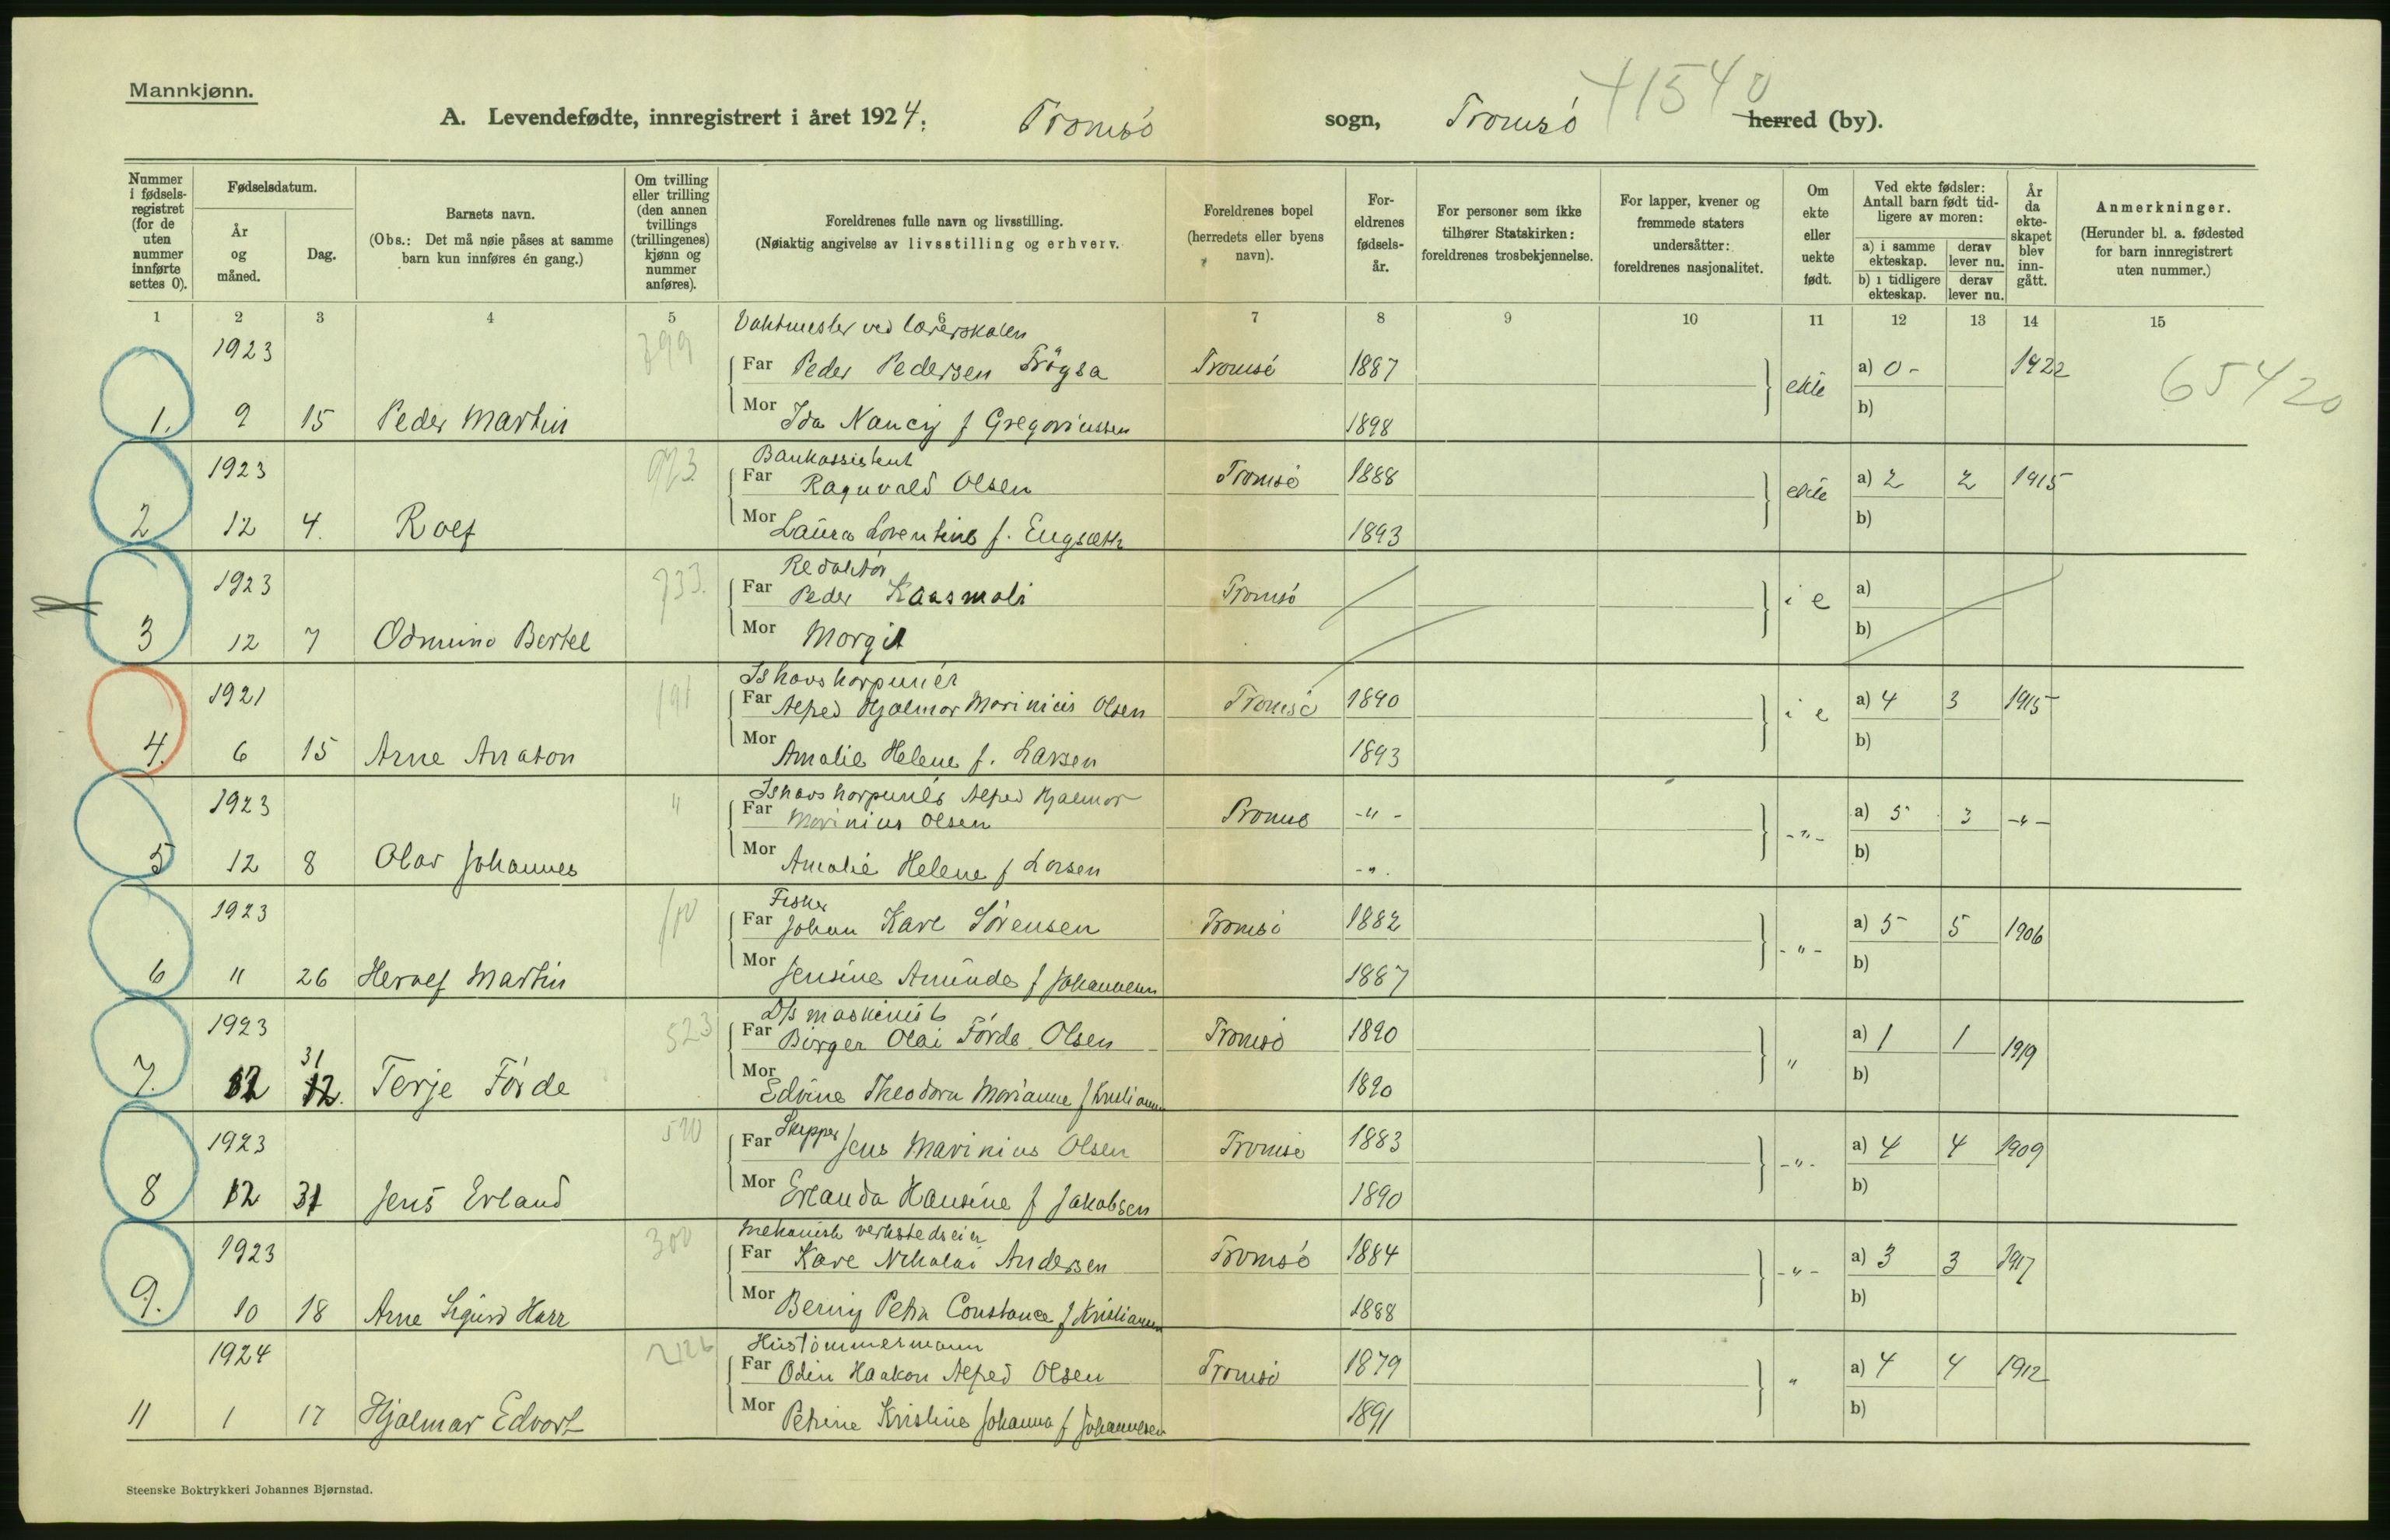 Mannkjønn.
A. Levendefødte, innregistrert i året 1924. Tromsö sogn, Tromsö herred (by). 41540
Nummer i fødsels-registret (for de uten nummer innførte settes 0).
Fødselsdatum.
År og måned.
Dag.
Barnets navn.
(Obs.: Det må nøie påses at samme barn kun innføres én gang.)
Om tvilling eller trilling (den annen tvillings (trillingenes) kjønn og nummer anføres).
Foreldrenes fulle navn og livsstilling.
(Nøiaktig angivelse av livsstilling og erhverv.
Foreldrenes bopel (herredets eller byens navn).
For-eldrenes fødsels-år.
For personer som ikke tilhører Statskirken: foreldrenes trosbekjennelse.
For lapper, kvener og fremmede staters undersåtter: foreldrenes nasjonalitet.
Om ekte eller uekte født.
Ved ekte fødsler: Antall barn født tid-ligere av moren:
a) i samme ekteskap. derav lever nu.
b) i tidligere ekteskap. derav lever nu.
År da ekte-skapet blev inn-gått.
Anmerkninger.
(Herunder bl. a. fødested for barn innregistrert uten nummer.)
1 2 3 4 5 6 7 8 9 10 11 12 13 14 15
Vaktmester ved lærerskolen
1923 799 Far Peder Pedersen Tromsö 1887 ekte a) 0 - 1922 65420
1. 9 15 Peder Martin Mor Ida Nancy f Gregoriussen 1898 b)
Bankassistent
1923 923 Far Ragnvald Olsen Tromsö 1888 ekte a) 2 2 1915
2 12 4. Rolf Mor Laura Lorentine f. Engsæth 1893 b)
Redaktör
1923 733. Far Peder Tromsö i e a)
3 12 7 Odmund Bertel Mor Margit b)
Ishavsharpunér
1921 191 Far Alfred Hjalmar Marinius Olsen Tromsö 1890 i e a) 4 3 1915
4. 6 15 Arne Anaton Mor Amalie Helene f. Larsen 1893 b)
Ishavsharpunér Alfred Hjalmar
1923 " Far Marinius Olsen Tromsö -"- -"- a) 5 3 -"-
5 12 8 Olav Johannes Mor Amalie Helene f Larsen -". b)
Fisker
1923 Far Johan Karl Sörensen Tromsö 1882 -"- a) 5 5 1906
6 11 26 Herolf Martin Mor Jensine Amunda f Johannesen 1887 b)
D/s maskinist
1923 523 Far Birger Olai Förde Olsen Tromsö 1890 " a) 1 1 1919
7. 12 31 12. Terje Förde Mor Edvine Theodora Marianne f Kristiansen 1890 b)
1923 510 Far Skipper Jens Marinius Olsen Tromsö 1883 -"- a) 4 4 1909
8 12 31 Jens Erland Mor Erlanda Hansine f Jakobsen 1890 b)
Mekanisk verkstedseier
1923 300 Far Karl Nikolai Andersen Tromsö 1884 -"- a) 3 3 1917
9. 10 18 Arne Sigurd Harr Mor Berny Petra Constance f Kristiansen 1888 b)
Hustömmermann
1924 2126 Far Odin Haakon Alfred Olsen Tromsö 1879 " a) 4 4 1912
11 1 17 Hjalmar Edvart Mor Petrine Kristine Johanna f Johannesen 1891 b)
Steenske Boktrykkeri Johannes Bjørnstad.